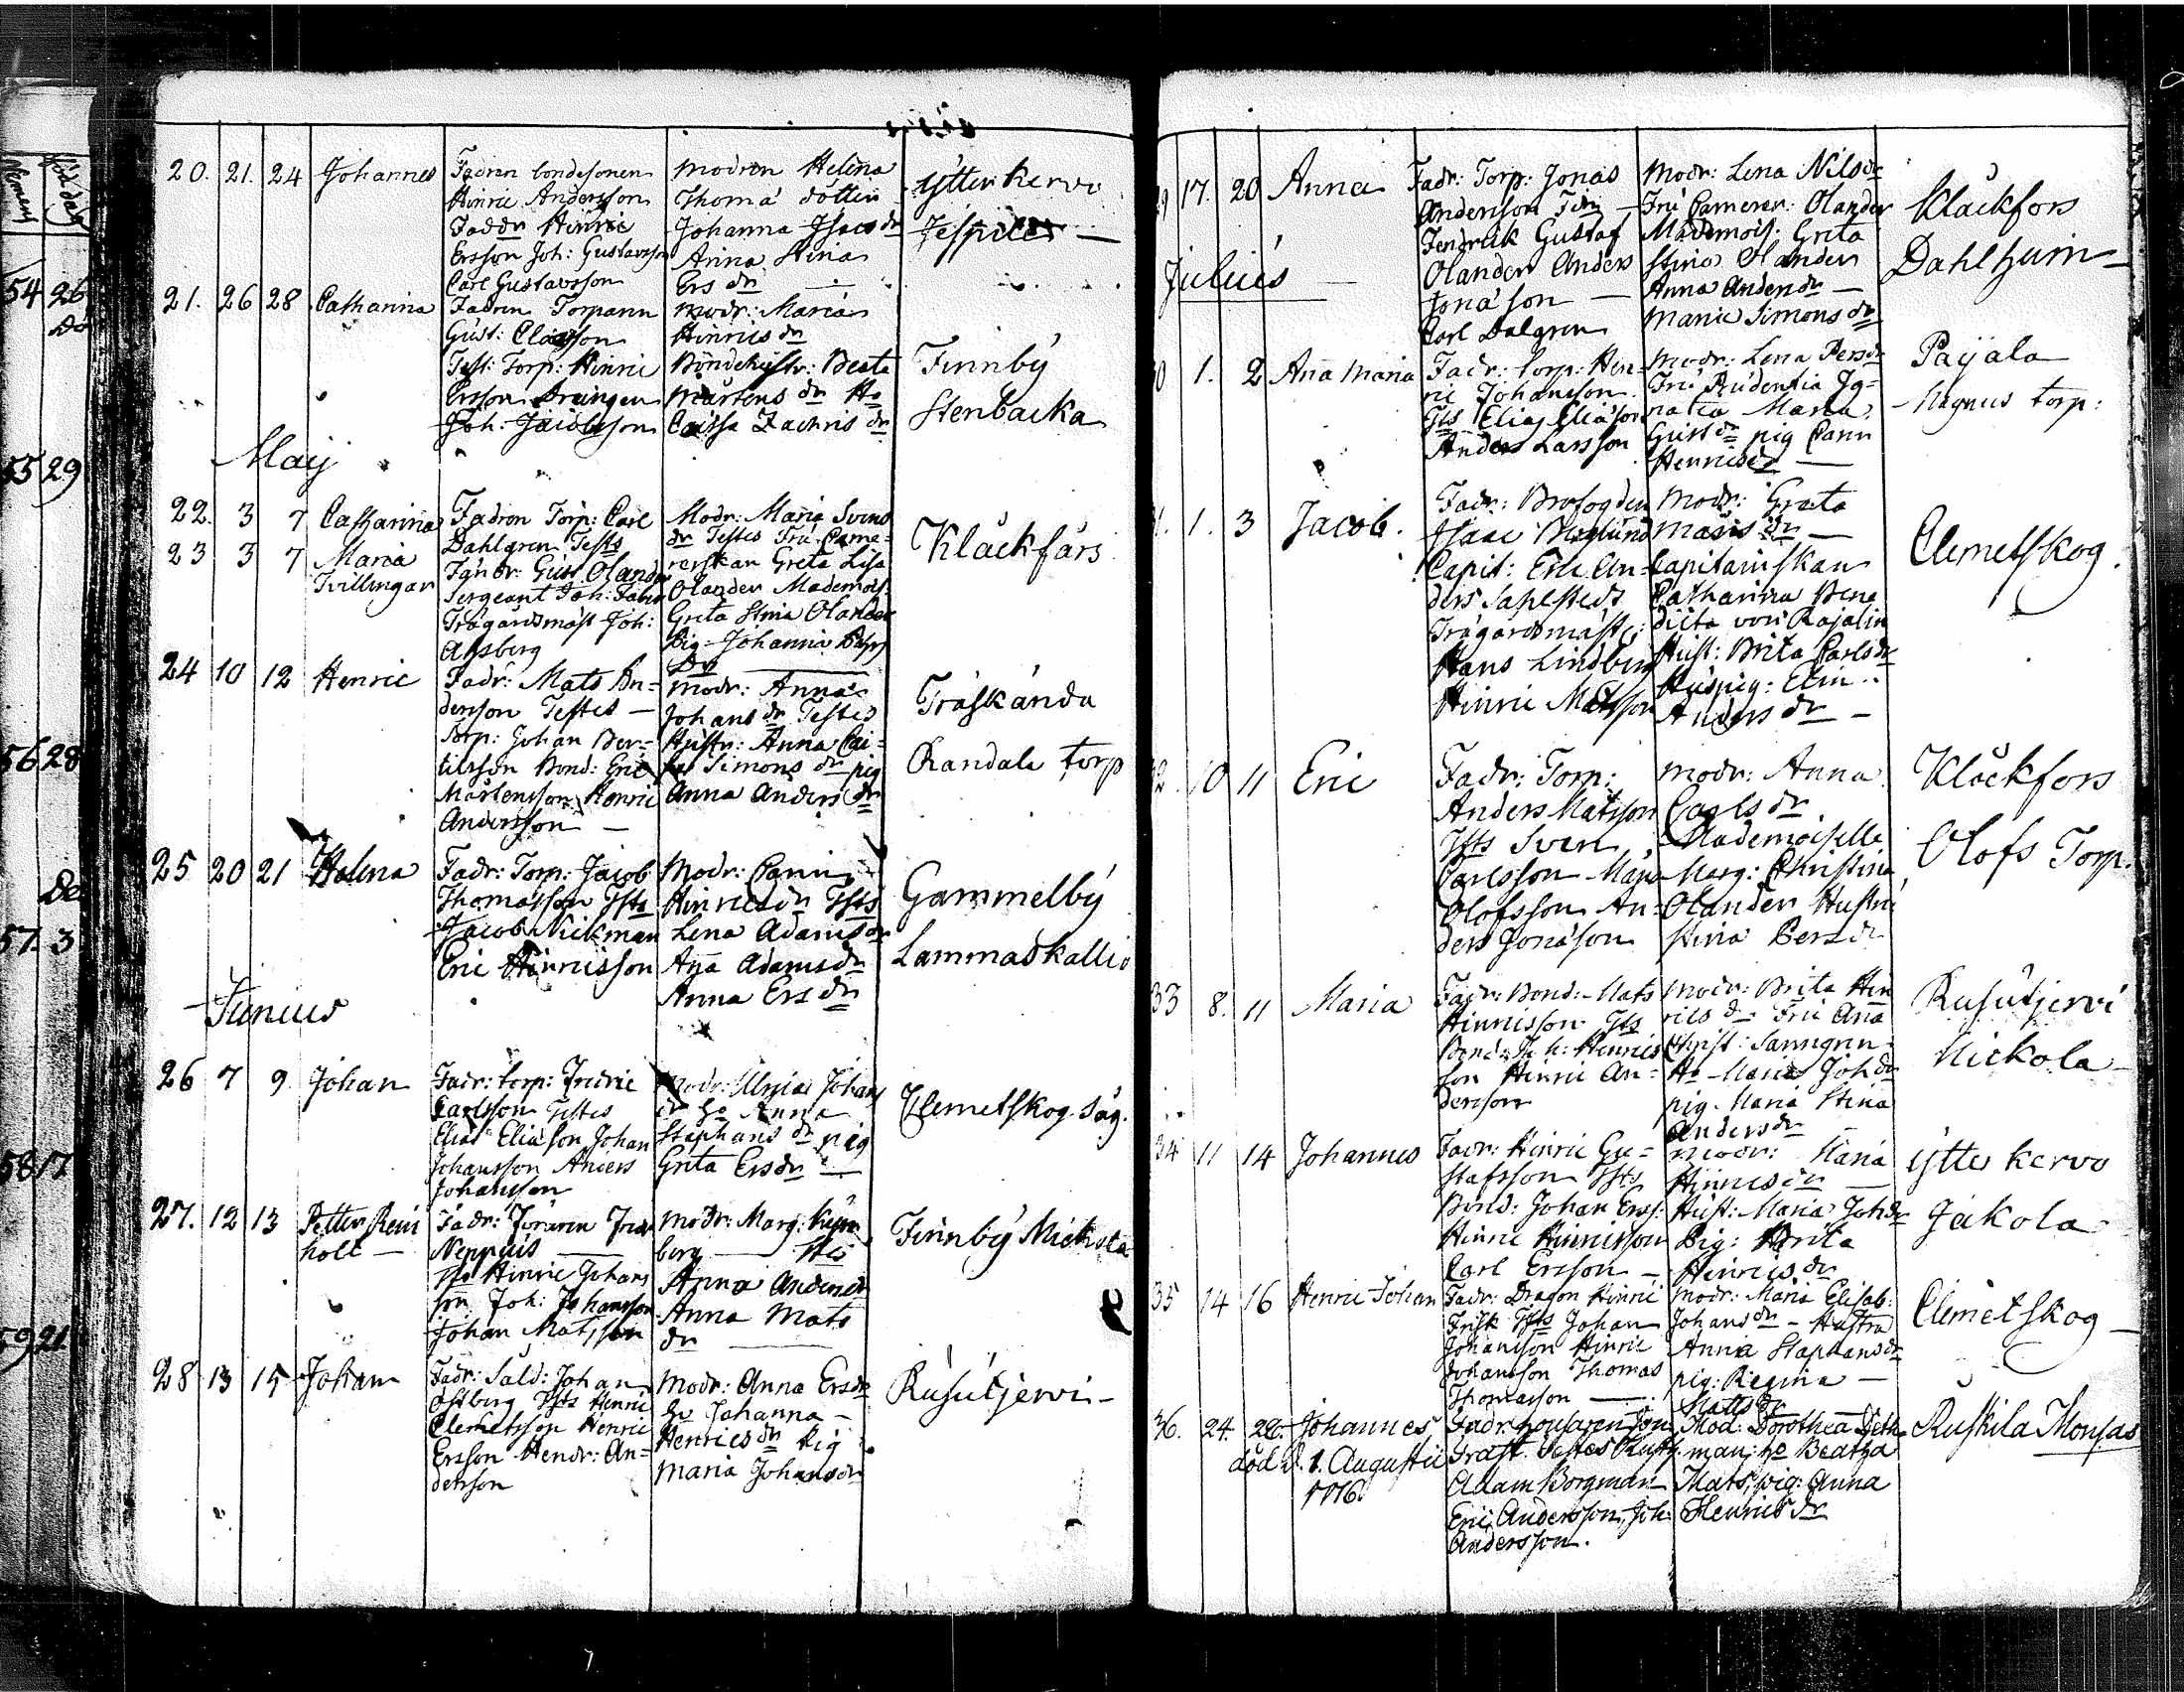 20. 21. 24 Johannes
Fadren bondesonen
Hinric Andersson
Faddr Hinric
Ersson Joh: Gustavsson
Carl Gustavsson
Modren Helena
Thomá dotter
Johanna Isacs dr
Anna Stina
Ers dr
ytter kervo
21. 26 28 Catharina
Fadren Torparen
Gust: Claesson
Test: Torp: Hinric
Ersson Drängen
Joh: Jacobsson
Modr: Maria
Hinrics dr
Bondehustr: Beata
Mårtens dr Ho
Caissa Zachris dr
Finnby
Stenbacka
Maij
22. 3 7 Catharina
23 3 7 Maria
Tvillingar
Fadren Torp: Carl
Dahlgren Tests
Fändr: Gust Olander
Sergeant Joh: Faber
Trägårdsmäst Joh:
Ahsberg
Modr: Maria Svens
dr Testes Fru Came-
rerskan Greta Lisa
Olander Mademois
Greta Stina Olander
Pig Johanna
dr
Kläckfårs
24 10 12 Henric
Fadr: Mats An-
dersson Testes
Torp: Johan Ber-
tilsson Bond: Eric
Mårtensson Henric
Andersson
Modr: Anna
Johans dr Testes
Hustr: Anna Cai-
sa Simons dr pig
Anna Anders dr
Träskända
Randala torp
25 20 21 Helena
Fadr: Torp: Jacob
Thomasson Tsts
Jacob Nickman
Eric Hinricsson
Modr: Carin
Hinrics dr Tsts
Lena Adams dr
Aña Adams dr
Anna Ers dr
Gammelby
Lammaskallio
Junius
26 7 9 Johan
Fadr: torp: Fredric
Carlsson Testes
Elias Eliason Johan
Johansson Anders
Johansson
Modr: Ulrica Johans
dr Ho Anna
Staphans dr pig
Greta Ersdr
Clemetskog såg.
27. 12 13 Petter Rein
holt
Neppius
Tsts Hinric Johans
son Joh: Johansson
Johan Matsson
Modr: Marg:
berg
Anna Andersdr
Anna Mats
dr
Finnby Mickola
28 13 15 Johan
Fadr: Sald: Johan
Östberg Tsts Henric
Clemetsson Henric
Ersson Hendr: An-
dersson
Modr: Anna Ersdr
Ho Johanna
Henrics dr Pig
Maria Johansdr
Rusutjervi
29 17. 20 Anna
Fadr: Torp: Jonas
Andersson
Fendrik Gustaf
Olander Anders
Jonáson
Carl Dalgren
Modr: Lena Nilsdr
Fru Camerer: Olander
Mademois: Greta
Stina Olander
Anna Andersdr
Maria Simons dr
Kläckfors
Dahlheim
Julius
30 1. 2 Aña Maria
Fadr: Torp: Hen-
ric Johansson
Tsts Elias Eliáson
Anders Larsson
Modr: Lena Persdr
Fru Prudentia Ig-
natia Maria
Gustdr pig Carin
Henricsdr
Paijala
Magnus torp:
31. 1. 3 Jacob.
Fadr: Brofogden
Isaac Berglund
Capit: Eric An-
ders Sahlstedt
Trägårdsmäst:
Hans Lindberg
Hinric Matsson
Modr: Greta
Mats dr
Capitainskan
Catharina Bene
dicta von Rajalin
Hust: Brita Carlsdr
Huspig: Elin
Anders dr
Clemetskog.
32. 10 11 Eric
Fadr: Torp:
Anders Matsson
Tsts Sven
Carlsson Mans
Olofsson An-
ders Jonáson
Modr: Anna
Carls dr
Mademoiselle
Marg: Christina
Olander Hustru
Stina Persdr
Kläckfors
Olofs Torp.
33 8. 11 Maria
Fadr: Bond: Mats
Hinricsson Tsts
Bond: Joh: Henrics
son Hinric An-
dersson
Modr: Brita Hin
rics dr Fru Aña
Christ: Sanngren
Ho Maria Joh dr
pig. Maria Stina
Andersdr
Rusutjervi
Nickola
34 11 14 Johannes
Fadr: Hinric Gu-
stafsson Tsts
Bond: Johan Erss:
Hinric Hinricsson
Carl Ersson
Modr: Maria
Hinricsdr
Hust: Maria Johdr
Pig: Brita
Hinricsdr
ytter kervo
Jakola
35 14 16 Henric Johan
Fadr: Dragon Hinric
Frisk Tsts Johan
Johansson Hinric
Johansson Thomas
Thomasson
Modr: Maria Elisab:
Johansdr Hustru
Anna Staphansdr
pig: Regina
Matts dr
Clemetskog
36. 24. 26. Johannes
död d. 1. Augustii
1776.
Fadr: housaren
Gräft. Testes
Adam Borgman
Eric Andersson, Joh:
Andersson.
Mod: Dorothea
man: ho Beatha
Mats, pig: Anna
Henrics dr
Ruskila Thomas